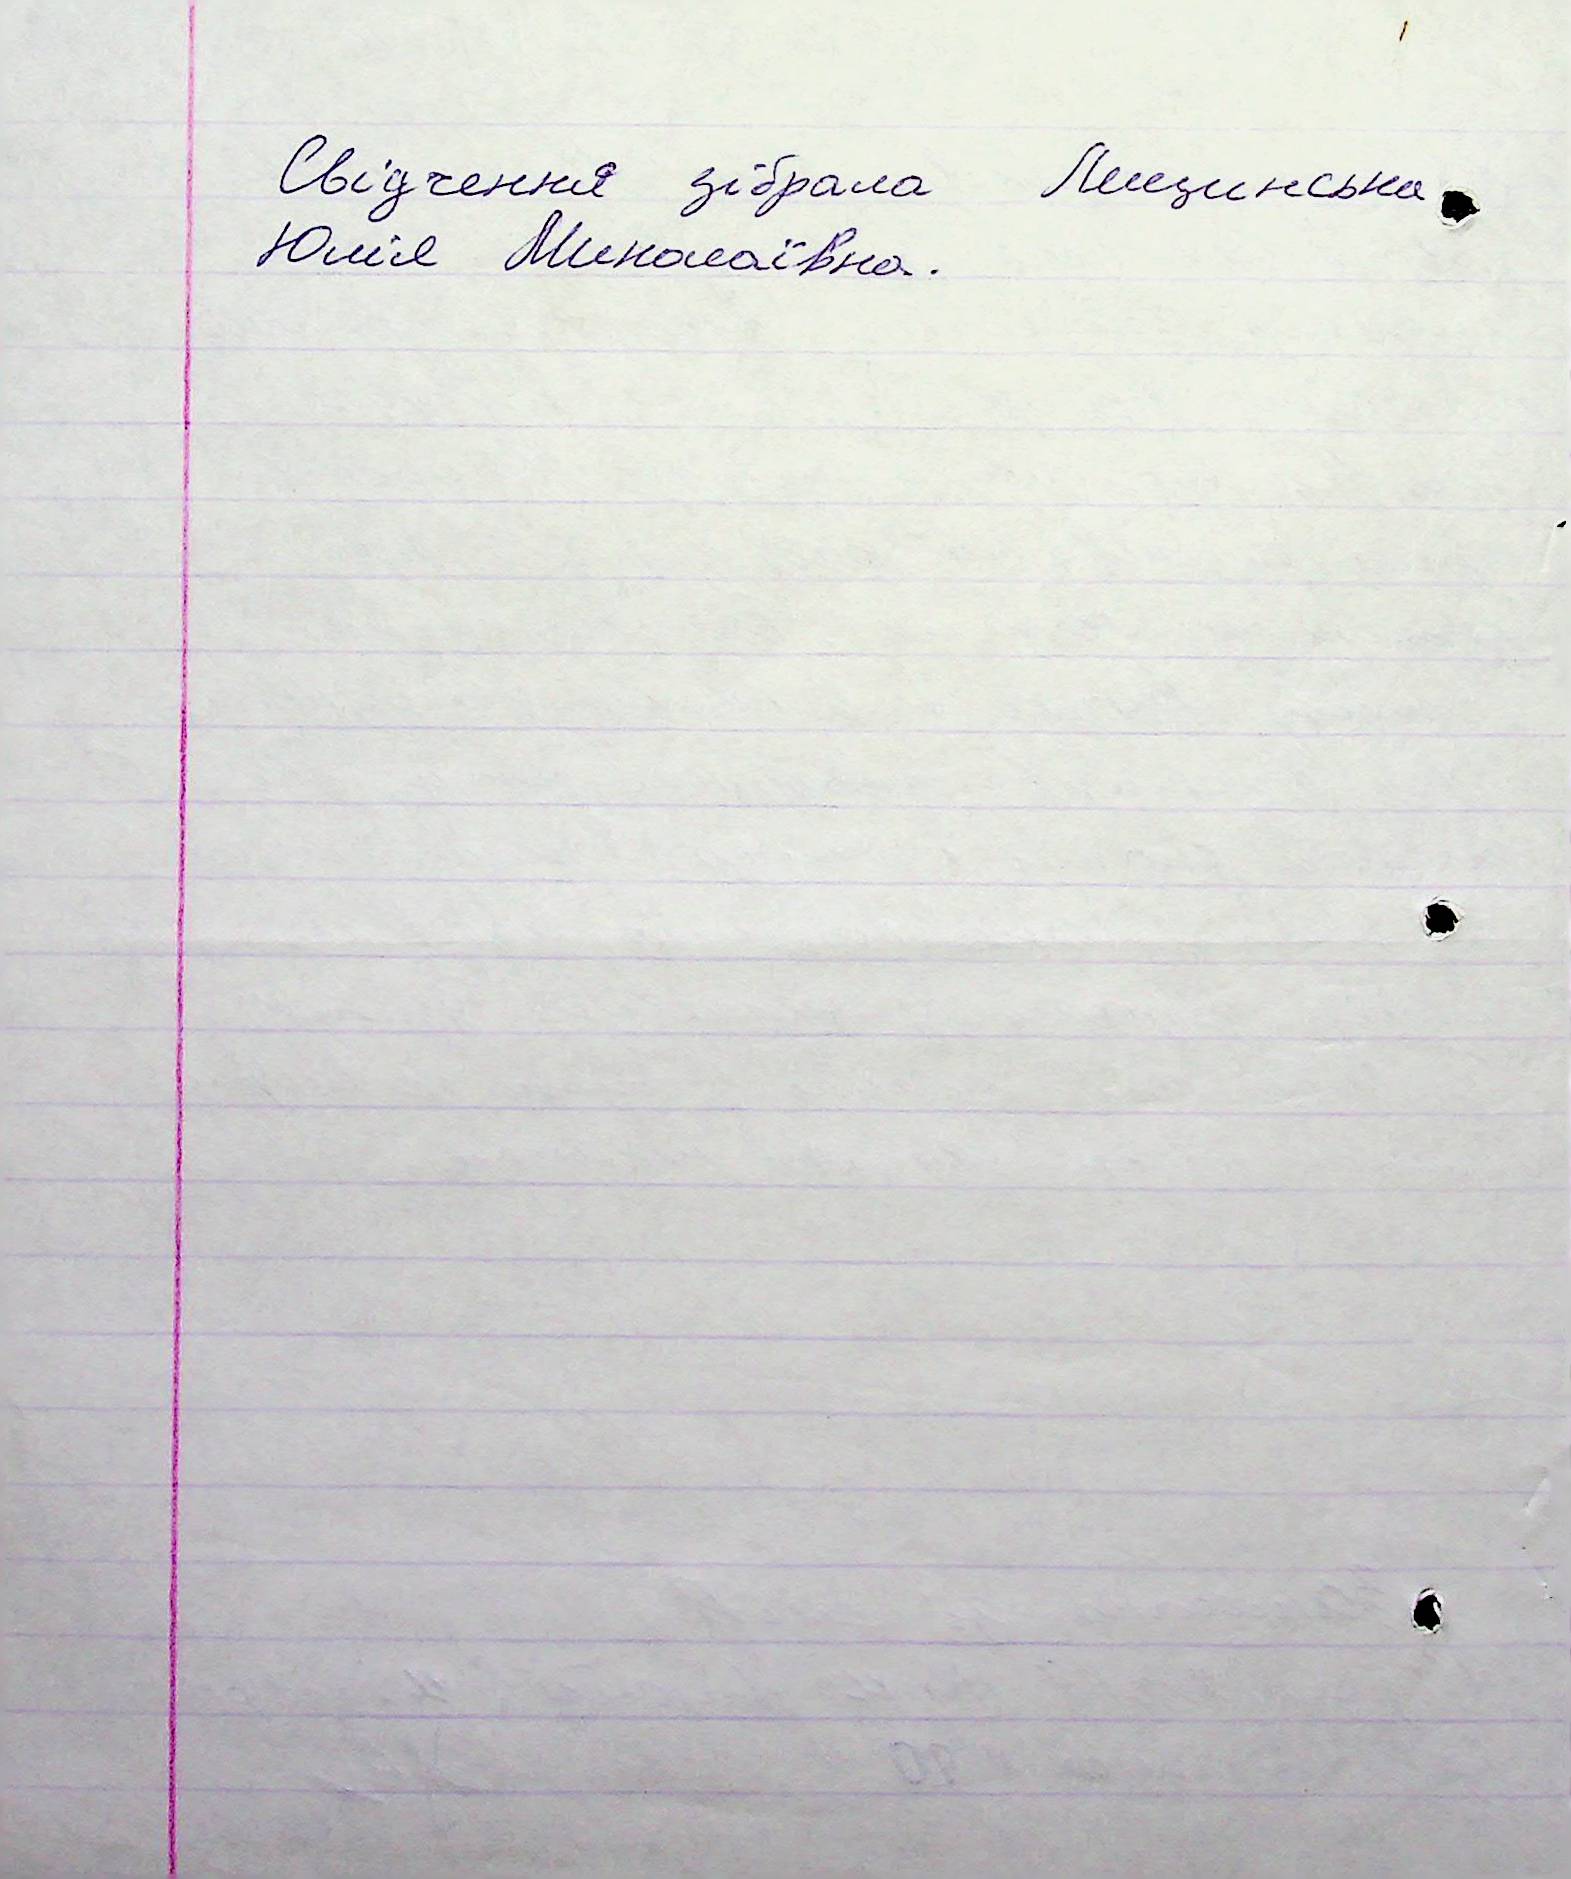 Свідчення зібрала Лищинська
Юлія Миколаївна.